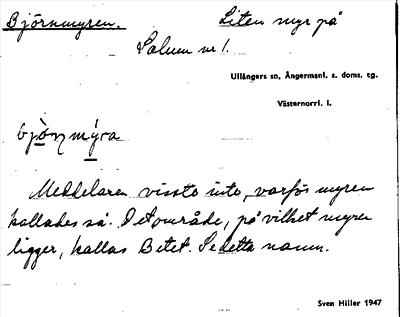 Björnmyren. Liten myr på
Salum nr 1.
Ullångers sn, Ångermanl. s. doms. tg.
Västernorrl. l.
bjò̱nmý̱ra
Meddelaren visste inte, varför myren
kallades så. Det område, på vilket myren
ligger, kallas Betet. Se detta namn.
Sven Hiller 1947